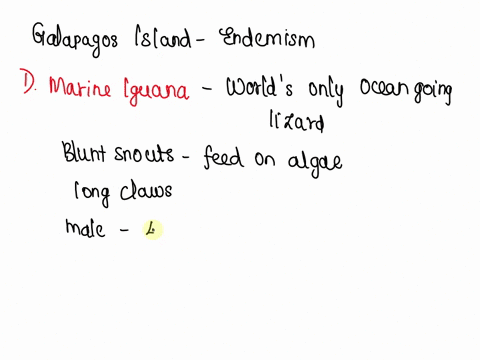 Galapagos Island - Endemism
D. Marine Iguana - World's only Ocean going
lizard
Blunt snouts - feed on algae
long claws
male - 4